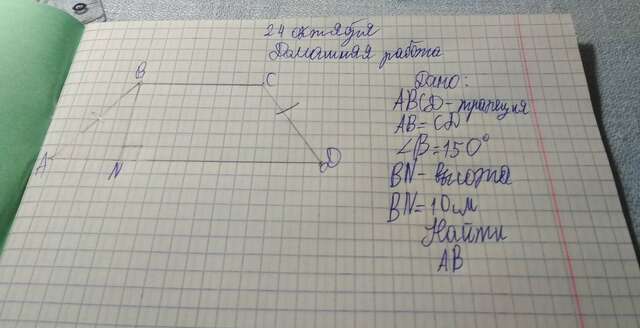 24 октября
Домашняя работа
B
C
A
N
D
Дано:
ABCD - трапеция
AB = CD
∠B = 150°
BN - высота
BN = 10 см
Найти
AB